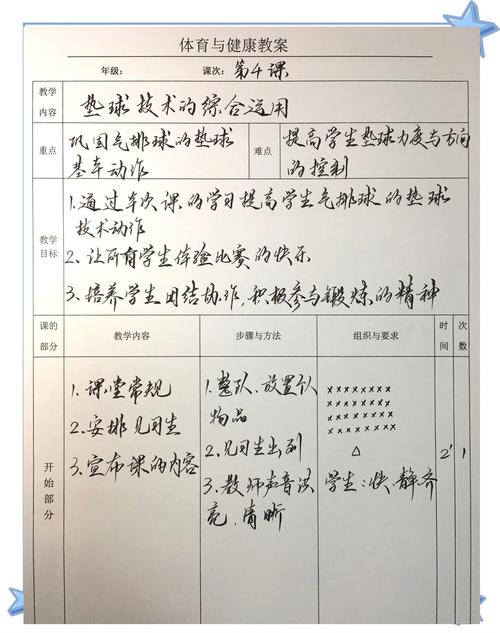 体育与健康教案
年级： 课次：第4课
教学
内容
垫球技术的综合运用
重点
巩固气排球的垫球
基本动作
难点
提高学生垫球力度与方向
的控制
教学
目标
1.通过本次课的学习提高学生气排球的垫球
技术动作
2.让所有学生体验比赛的快乐
3.培养学生团结协作,积极参与锻炼的精神
课的
部分
教学内容
步骤与方法
组织与要求
时
间
次
数
开
始
部
分
1.课堂常规
2.安排见习生
3.宣布课的内容
1.整队、放置个人
物品
2.见习生出列
3.教师声音洪
亮、清晰
××××××××
××××××××
××××××××
××××××××
△
学生:快、静、齐
2'
1